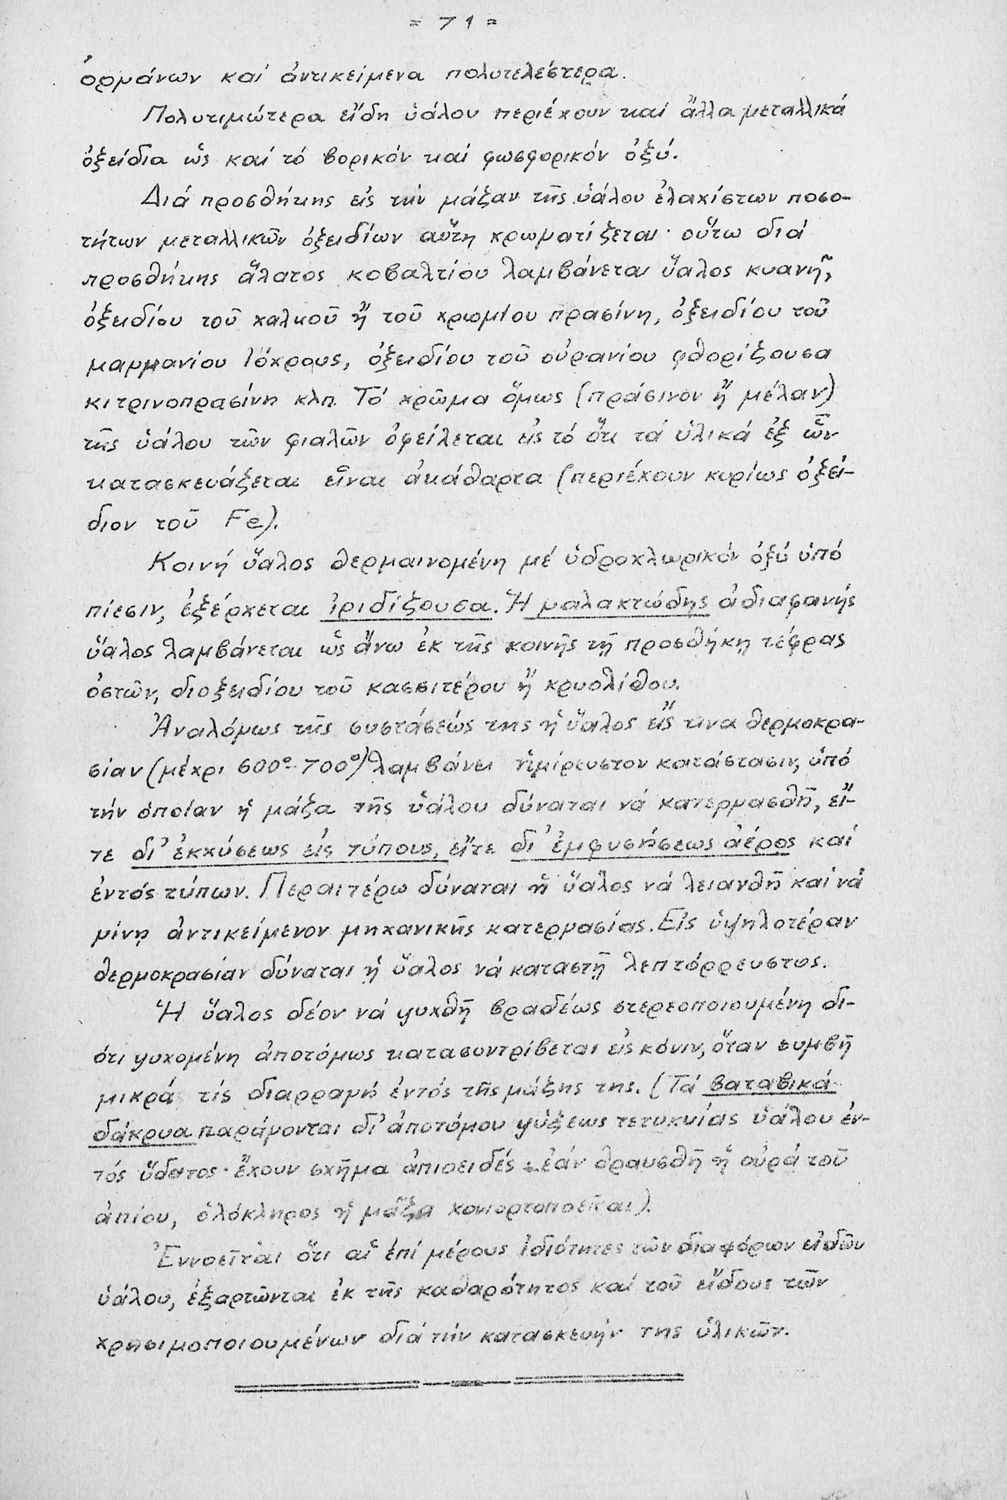 = 71 =
ὀργάνων καί ἀντικείμενα πολυτελέστερα.
Πολυτιμώτερα εἴδη ὑάλου περιέχουν καί ἄλλα μεταλλικά
ὀξείδια ὡς καί τό βορικόν καί φωσφορικόν ὀξύ.
Διά προσθήκης εἰς τήν μάζαν τῆς ὑάλου ἐλαχίστων ποσο-
τήτων μεταλλικῶν ὀξειδίων αὕτη χρωματίζεται· οὕτω διά
προσθήκης ἅλατος κοβαλτίου λαμβάνεται ὕαλος κυανῆ,
ὀξειδίου τοῦ χαλκοῦ ἤ τοῦ χρωμίου πρασίνη, ὀξειδίου τοῦ
μαγγανίου ἰόχρους, ὀξειδίου τοῦ οὐρανίου φθορίζουσα
κιτρινοπρασίνη κλπ. Τό χρῶμα ὅμως (πράσινον ἤ μέλαν)
τῆς ὑάλου τῶν φιαλῶν ὀφείλεται εἰς τό ὅτι τά ὑλικά ἐξ ὧν
κατασκευάζεται εἶναι ἀκάθαρτα (περιέχουν κυρίως ὀξεί-
διον τοῦ Fe).
Κοινή ὕαλος θερμαινομένη μέ ὑδροχλωρικόν ὀξύ ὑπό
πίεσιν, ἐξέρχεται ἰριδίζουσα. Ἡ γαλακτώδης ἀδιαφανής
ὕαλος λαμβάνεται ὡς ἄνω ἐκ τῆς κοινῆς τῇ προσθήκῃ τέφρας
ὀστῶν, διοξειδίου τοῦ κασσιτέρου ἤ κρυολίθου.
Ἀναλόγως τῆς συστάσεώς της ἡ ὕαλος εἴς τινα θερμοκρα-
σίαν (μέχρι 600°-700°) λαμβάνει ἡμίρευστον κατάστασιν, ὑπό
τήν ὁποίαν ἡ μάζα τῆς ὑάλου δύναται νά κατεργασθῇ, εἴ-
τε δι' ἐκχύσεως εἰς τύπους, εἴτε δι' ἐμφυσήσεως ἀέρος καί
ἐντός τύπων. Περαιτέρω δύναται ἡ ὕαλος νά λειανθῇ καί νά
γίνῃ ἀντικείμενον μηχανικῆς κατεργασίας. Εἰς ὑψηλοτέραν
θερμοκρασίαν δύναται ἡ ὕαλος νά καταστῇ λεπτόρρευστος.
Ἡ ὕαλος δέον νά ψυχθῇ βραδέως στερεοποιουμένη δι-
ότι ψυχομένη ἀποτόμως κατασυντρίβεται εἰς κόνιν, ὅταν συμβῇ
μικρά τις διαρραγή ἐντός τῆς μάζης της. (Τά βαταβικά
δάκρυα παράγονται δι' ἀποτόμου ψύξεως τετυκνίας ὑάλου ἐν-
τός ὕδατος· ἔχουν σχῆμα ἀπιοειδές - ἐάν θραυσθῇ ἡ οὐρά τοῦ
ἀπίου, ὁλόκληρος ἡ μᾶζα κονιορτοποιεῖται).
Ἐννοεῖται ὅτι αἱ ἐπί μέρους ἰδιότητες τῶν διαφόρων εἰδῶν
ὑάλου, ἐξαρτῶνται ἐκ τῆς καθαρότητος καί τοῦ εἴδους τῶν
χρησιμοποιουμένων διά τήν κατασκευήν της ὑλικῶν.